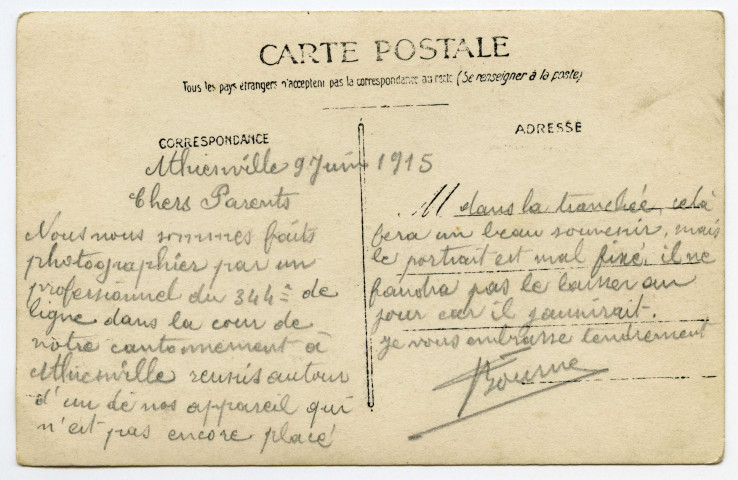 CARTE POSTALE
Tous les pays étrangers n'acceptent pas la correspondance au recto (Se renseigner à la poste)
CORRESPONDANCE
Athiesville 9 Juin 1915
Chers Parents
Nous nous sommes faits
photographier par un
professionnel du 344e de
ligne dans la cour de
notre cantonnement à
Athiesville reunis autour
d'un de nos appareil qui
n'est pas encore placé
ADRESSE
dans la tranchée, cela
fera un beau souvenir, mais
le portrait est mal fixé, il ne
faudra pas le laisser au
jour car il jaunirait.
je vous embrasse tendrement